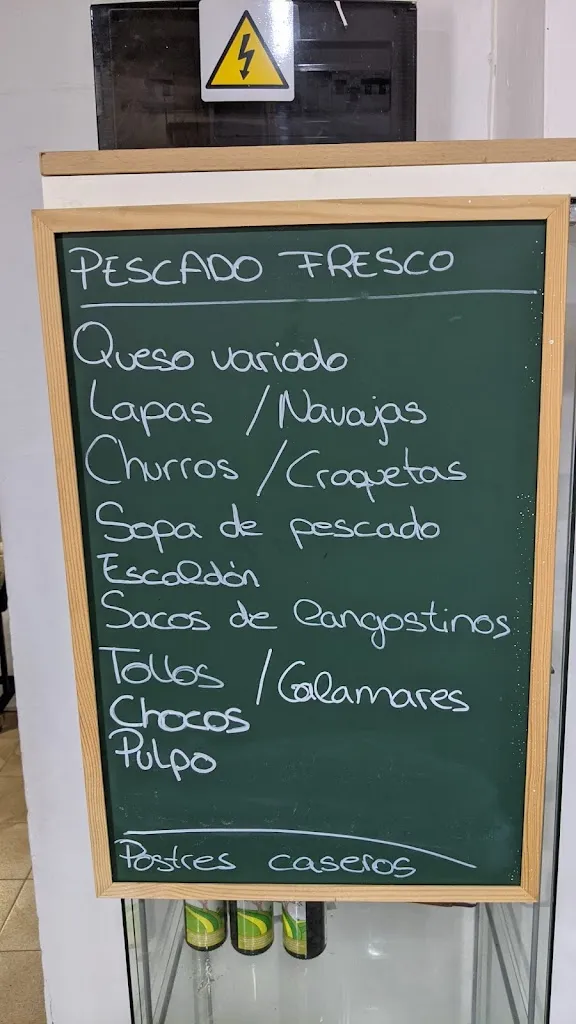 PESCADO FRESCO
Queso variado
Lapas / Navajas
Churros / Croquetas
Sopa de pescado
Escaldón
Sacos de langostinos
Tollos / Calamares
Chocos
Pulpo
Postres caseros